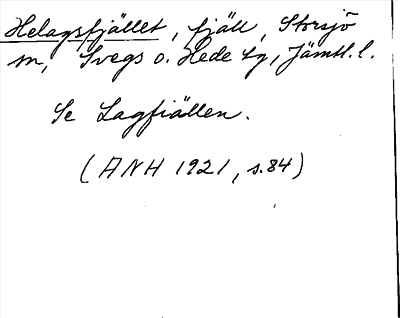 Helagsfjället, fjäll, Storsjö
sn, Svegs o. Hede tg, Jämtl. l.
Se Lagfjällen.
(ANH 1921, s. 84)